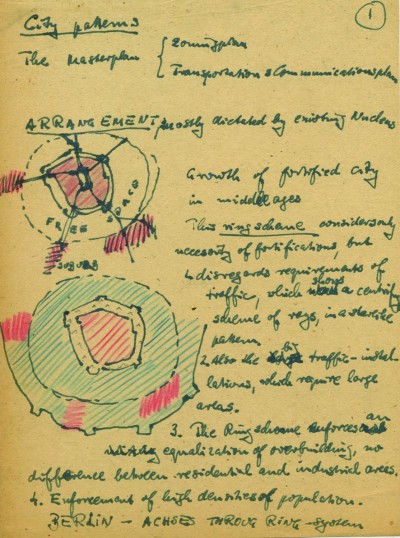 City patterns
1
The Masterplan { Zoningplan
Transportation & Communicationsplan
ARRANGEMENT, mostly dictated by existing Nucleus
Growth of fortified city
in middleages
This ringscheme considers only
necessity of fortifications, but
1. disregards requirements of
traffic, which shows a centrify
scheme of rays, in a starlike
pattern
2. Also the big traffic-instal-
lations, which require large
areas.
3. The Ringscheme enforces an
equalization of overbuilding, no
difference between residential and industrial areas.
4. Enforcement of high densities of population.
BERLIN - ACHSES THROUG RING-System
FREE SPACE
SUBURB